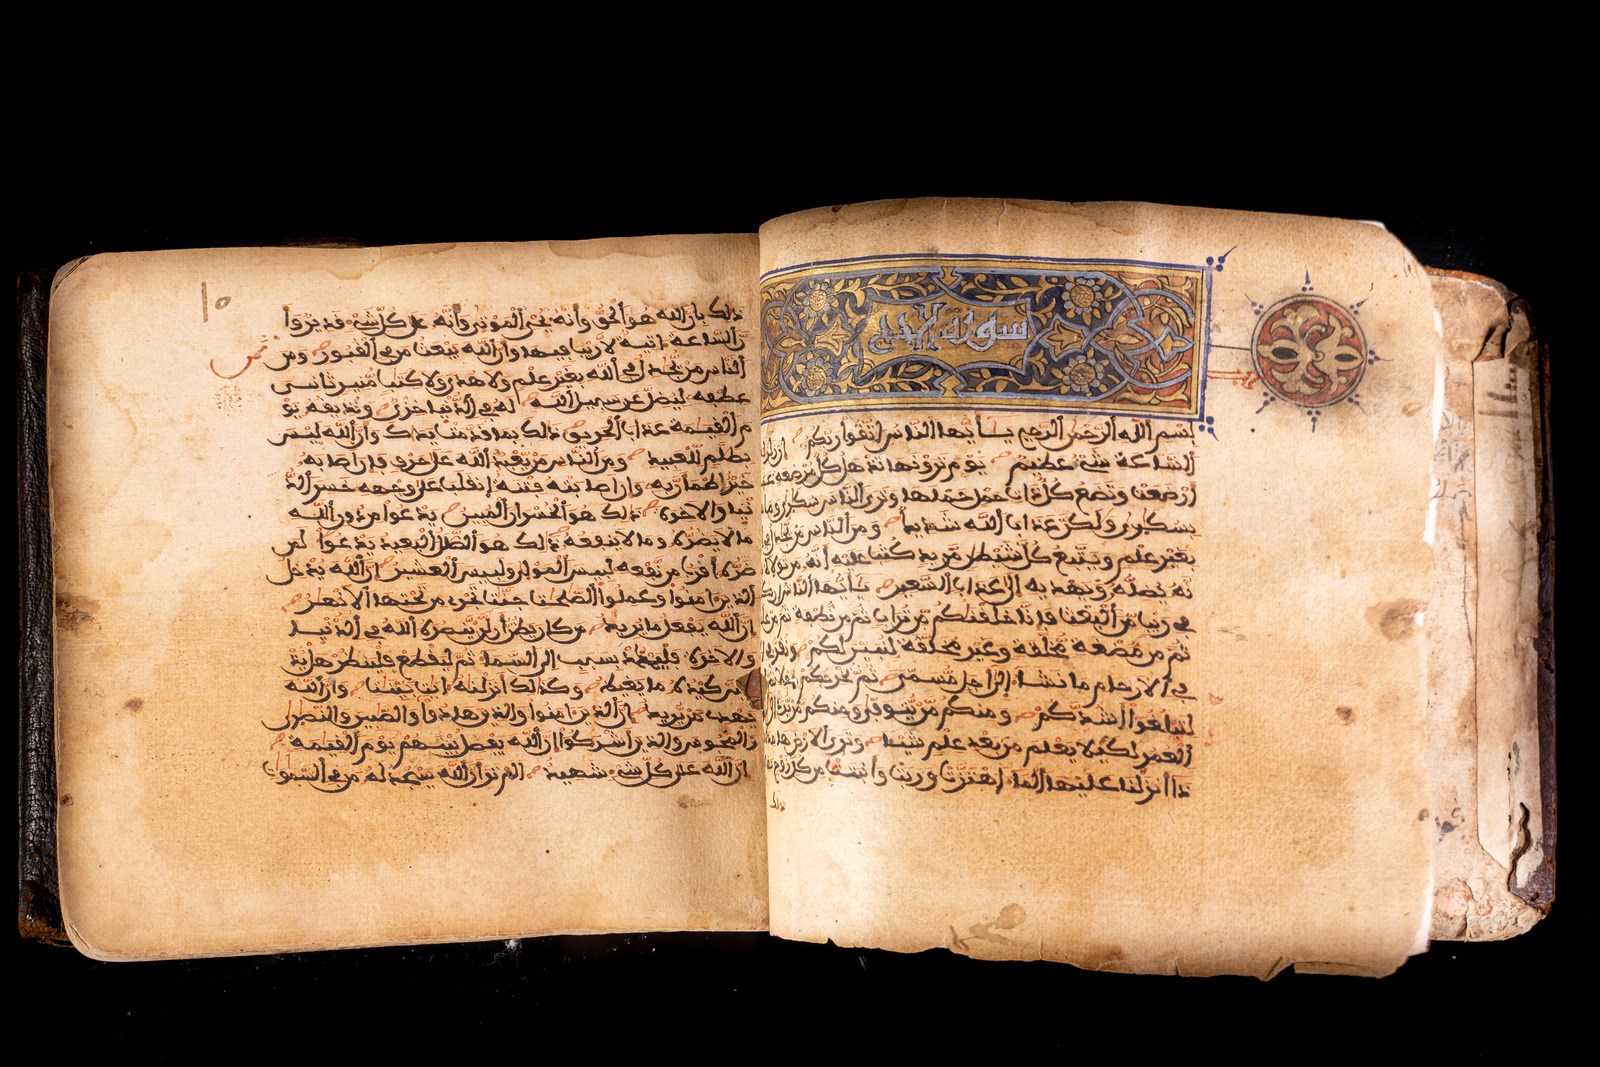 سورة الحج
بسم الله الرحمن الرحيم يأيها الناس اتقوا ربكم إن زلزلة
الساعة شيء عظيم يوم ترونها تذهل كل مرضعة عما
أرضعت وتضع كل ذات حمل حملها وترى الناس سكرى وما
بسكرى ولكن عذاب الله شديد ومن الناس من يجدل
بغير علم ويتبع كل شيطن مريد كتب عليه أنه من تولاه
نه يضله ويهديه إلى عذاب السعير يأيها الناس إن
في ريب من البعث فإنا خلقنكم من تراب ثم من نطفة ثم من
ثم من مضغة مخلقة وغير مخلقة لنبين لكم ونقر
في الارحام ما نشاء إلى أجل مسمى ثم نخرجكم
لتبلغوا أشدكم ومنكم من يتوفى ومنكم من يرد
العمر لكيلا يعلم من بعد علم شيئا وترى الارض
ذا أنزلنا عليها الماء اهتزت وربت وأنبتت من كل زوج
ذلك بأن الله هو الحق وأنه يحي الموتى وأنه على كل شيء قدير وأ
ن الساعة اتية لا ريب فيها وأن الله يبعث من في القبور ومن
الناس من يجدل في الله بغير علم ولا هدى ولا كتب منير ثاني
عطفه ليضل عن سبيل الله له في الدنيا خزي ونذيقه يو
م القيمة عذاب الحريق ذلك بما قدمت يداك وأن الله ليس
بظلم للعبيد ومن الناس من يعبد الله على حرف فإن اصابه
خير اطمأن به وإن اصابته فتنة إنقلب على وجهه خسر الد
نيا والاخرة ذلك هو الخسران المبين يدعوا من دون الله
ما لا يضره وما لا ينفعه ذلك هو الضلل البعيد يدعوا لمن
ضره أقرب من نفعه لبيس المولى ولبيس العشير إن الله يدخل
الذين امنوا وعملوا الصلحت جنت تجري من تحتها الانهر
إن الله يفعل ما يريد من كان يظن أن لن ينصره الله في الدنيا
والاخرة فليمدد بسبب إلى السماء ثم ليقطع فلينظر هل يذ
هبن كيده ما يغيظ وكذلك انزلنه ايت بينت وأن الله
يهدي من يريد إن الذين امنوا والذين هادوا والصبين والنصرى
والمجوس والذين أشركوا إن الله يفصل بينهم يوم القيمة
إن الله على كل شيء شهيد الم تر أن الله يسجد له من في السموت